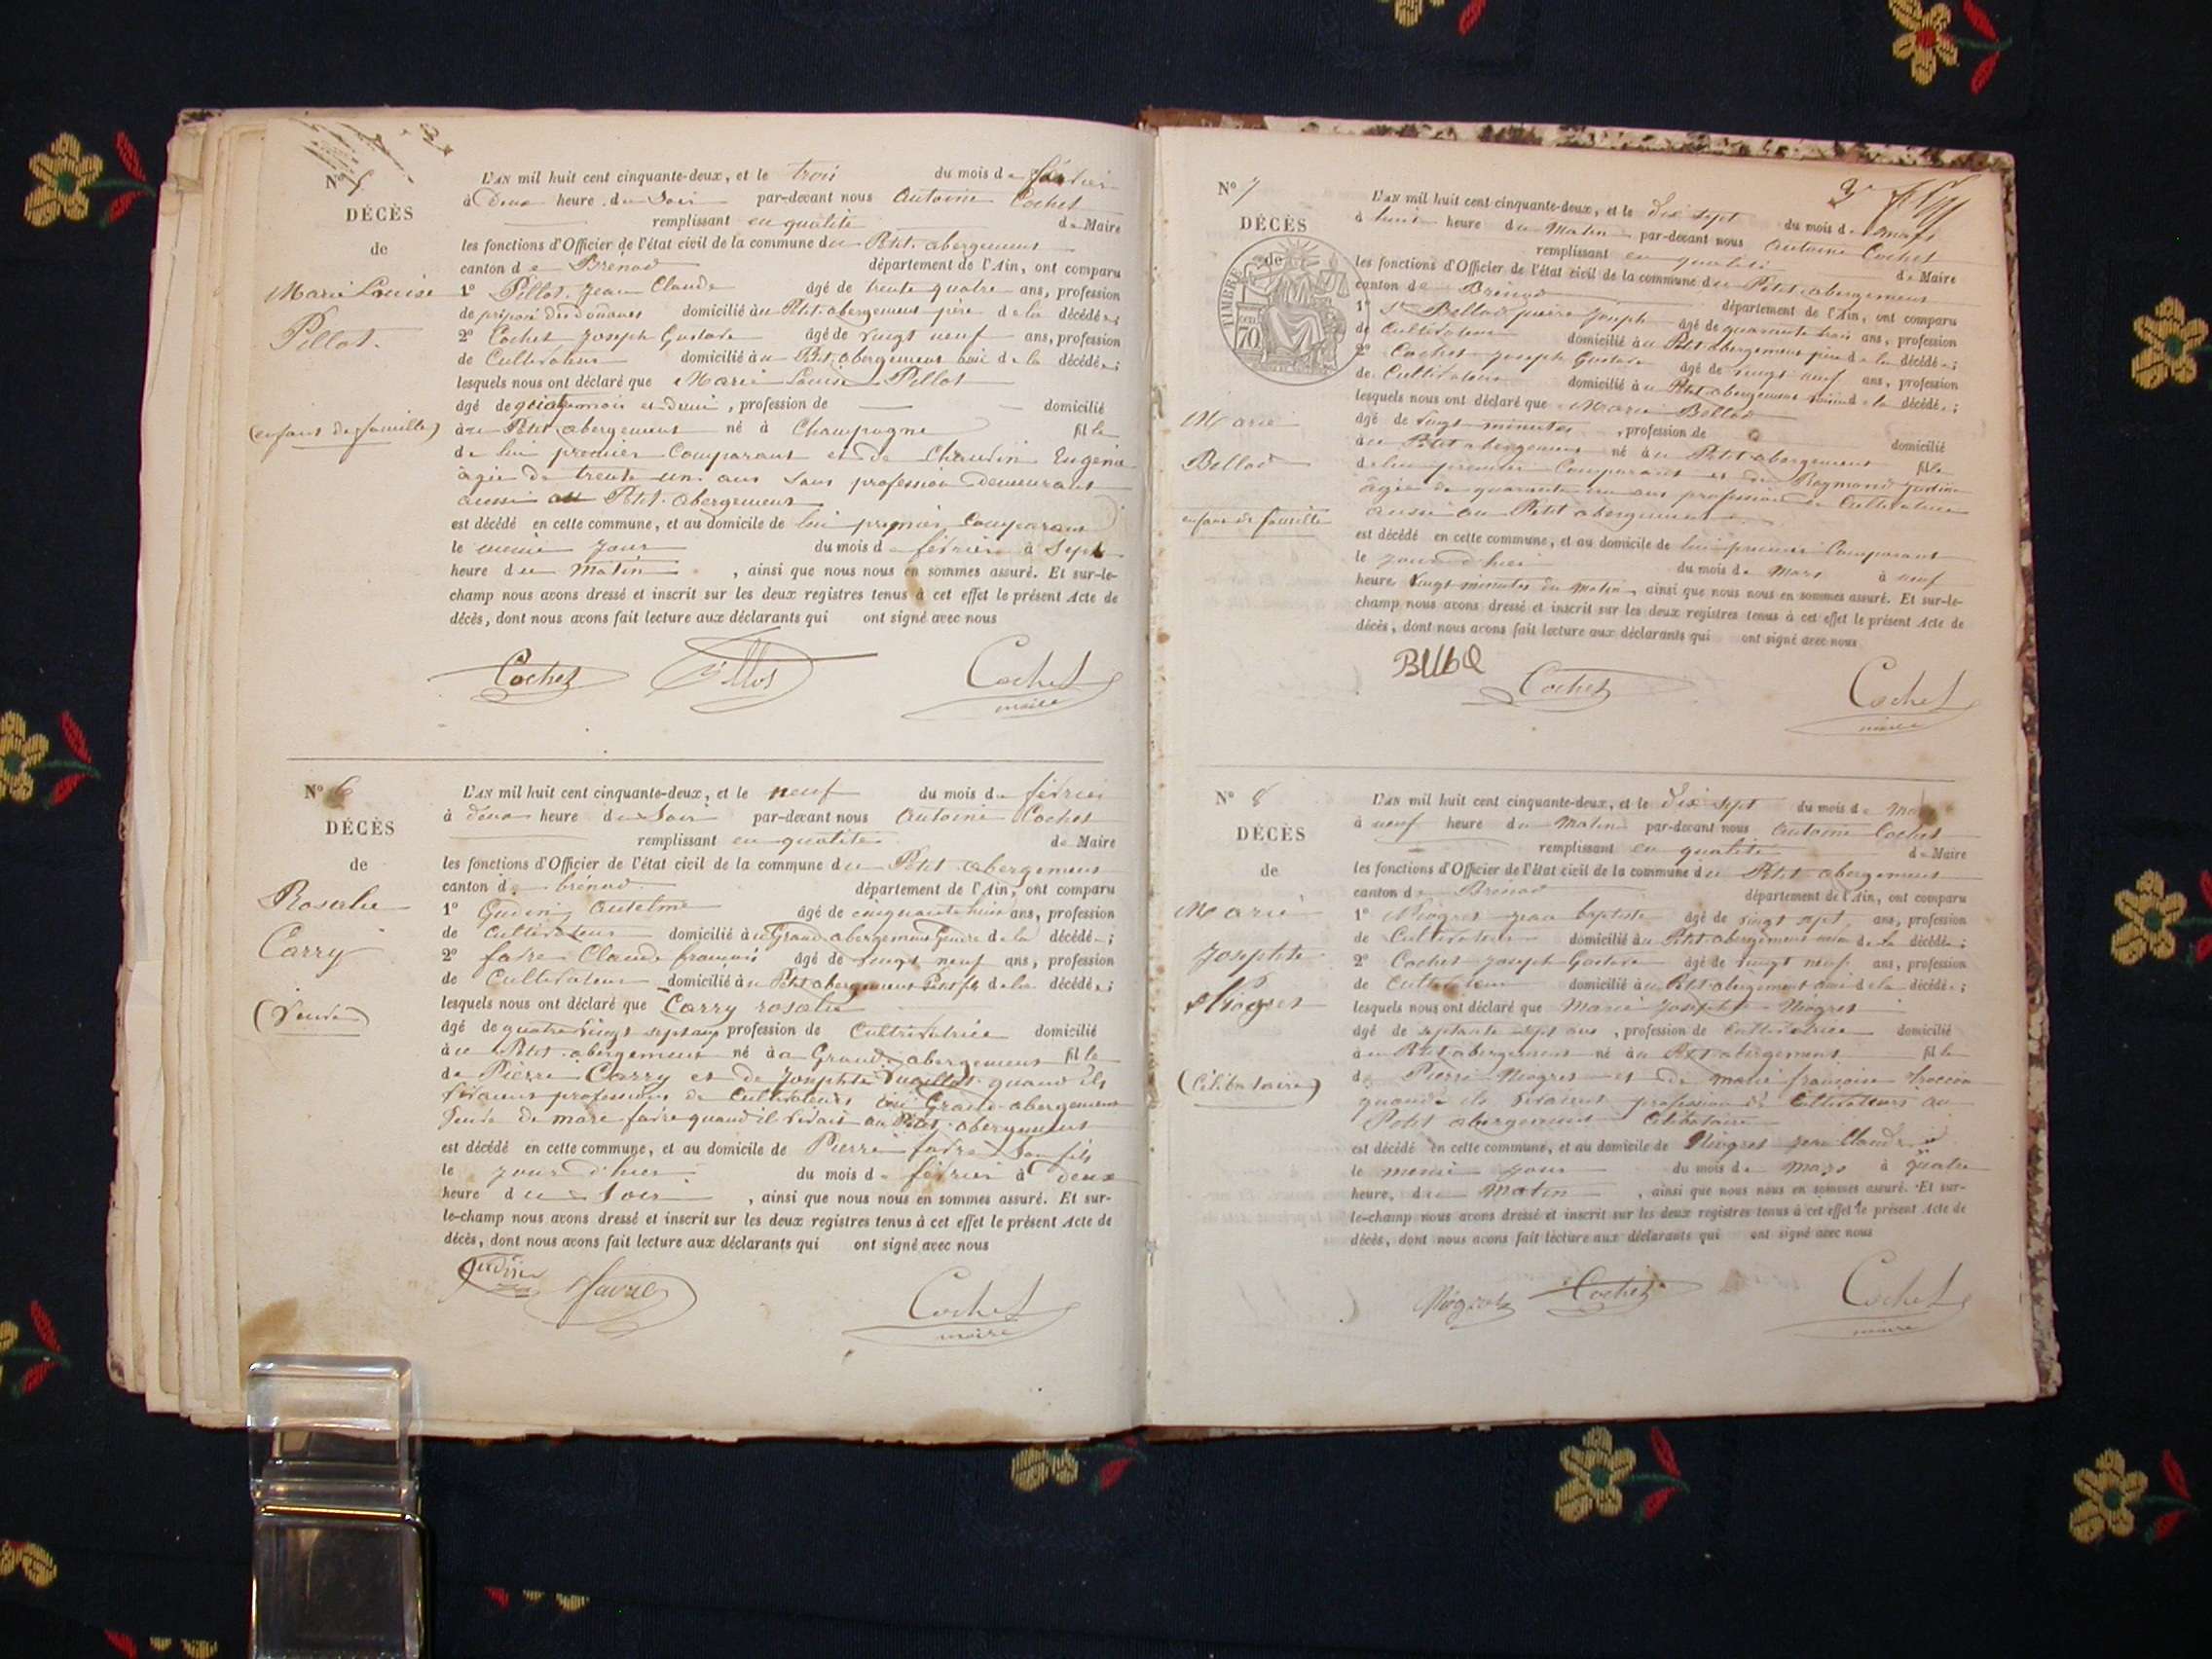 No 5
DÉCÈS
de
Marie Louise
Pillot.
(enfant de famille)
L'AN mil huit cent cinquante-deux, et le trois du mois de février
à Deux heure du Soir par-devant nous Antoine Cochet
remplissant en qualité de Maire
les fonctions d'Officier de l'état civil de la commune du Petit-abergement
canton de Brénod département de l'Ain, ont comparu
1° Pillot Jean Claude âgé de trente quatre ans, profession
de préposé des douanes domicilié au Petit-abergement père de la décédée;
2° Cochet Joseph Gustave âgé de vingt neuf ans, profession
de Cultivateur domicilié au Petit abergement ami de la décédée;
lesquels nous ont déclaré que Marie Louise Pillot
âgé de mois et demi, profession de domicilié
au Petit abergement né à Champagne fille
de lui premier Comparant et de Chaudin Eugénie
âgée de trente un ans sans profession demeurant
aussi au Petit-abergement
est décédé en cette commune, et au domicile de lui premier Comparant
le même jour du mois de février à Sept
heure du Matin, ainsi que nous nous en sommes assuré. Et sur-le-
champ nous avons dressé et inscrit sur les deux registres tenus à cet effet le présent Acte de
décès, dont nous avons fait lecture aux déclarants qui ont signé avec nous
Cochet Pillot Cochet
maire
No 6
DÉCÈS
de
Rosalie
Carry
(Veuve)
L'AN mil huit cent cinquante-deux, et le neuf du mois de février
à deux heure du Soir par-devant nous Antoine Cochet
remplissant en qualité de Maire
les fonctions d'Officier de l'état civil de la commune du Petit abergement
canton de brénod département de l'Ain, ont comparu
1° Gudin Antelme âgé de cinquante huit ans, profession
de Cultivateur domicilié au Grand abergement Gendre de la décédée;
2° favre Claude françois âgé de vingt neuf ans, profession
de Cultivateur domicilié au Petit abergement Petit fils de la décédée;
lesquels nous ont déclaré que Carry rosalie
âgé de quatre vingt sept ans profession de Cultivatrice domicilié
au Petit-abergement né au Grand-abergement fille
de Pierre Carry et de Josephte quand ils
vivaient professions de Cultivateurs au Grand-abergement
veuve de marc favre quand il vivait au Petit-abergement
est décédé en cette commune, et au domicile de Pierre favre Son fils
le jour d'hier du mois de février à deux
heure du Soir, ainsi que nous nous en sommes assuré. Et sur-
le-champ nous avons dressé et inscrit sur les deux registres tenus à cet effet le présent Acte de
décès, dont nous avons fait lecture aux déclarants qui ont signé avec nous
Gudin favre Cochet
maire
No 7
DÉCÈS
de
TIMBRE
70
Marie
Bellod
enfant de famille
L'AN mil huit cent cinquante-deux, et le dix sept du mois de mars
à huit heure du Matin par-devant nous Antoine Cochet
remplissant en qualité de Maire
les fonctions d'Officier de l'état civil de la commune du Petit abergement
canton de Brénod département de l'Ain, ont comparu
1° Bellod pierre joseph âgé de quarante trois ans, profession
de Cultivateur domicilié au Petit abergement père de la décédée;
2° Cochet Joseph Gustave âgé de vingt neuf ans, profession
de Cultivateur domicilié au Petit abergement voisin de la décédée;
lesquels nous ont déclaré que Marie Bellod
âgé de vingt minutes, profession de domicilié
au Petit abergement né au Petit abergement fille
de lui premier Comparant et de Raymond
âgée de quarante un ans profession de Cultivatrice
aussi au Petit abergement
est décédé en cette commune, et au domicile de lui premier Comparant
le jour d'hier du mois de Mars à neuf
heure vingt minutes du matin, ainsi que nous nous en sommes assuré. Et sur-le-
champ nous avons dressé et inscrit sur les deux registres tenus à cet effet le présent Acte de
décès, dont nous avons fait lecture aux déclarants qui ont signé avec nous
Cochet Cochet
maire
No 8
DÉCÈS
de
Marie
Josephte
Niogret
(Célibataire)
L'AN mil huit cent cinquante-deux, et le dix sept du mois de Mars
à neuf heure du Matin par-devant nous Antoine Cochet
remplissant en qualité de Maire
les fonctions d'Officier de l'état civil de la commune du Petit abergement
canton de Brénod département de l'Ain, ont comparu
1° Niogret jean baptiste âgé de vingt sept ans, profession
de Cultivateur domicilié au Petit abergement de la décédée;
2° Cochet Joseph Gustave âgé de vingt neuf ans, profession
de Cultivateur domicilié au Petit abergement ami de la décédée;
lesquels nous ont déclaré que Marie Josephte Niogret
âgé de septante sept ans, profession de Cultivatrice domicilié
au Petit abergement né au Petit abergement fille
de Pierre Niogret et de marie françoise
quand ils vivaient profession de Cultivateurs au
Petit abergement Célibataire
est décédé en cette commune, et au domicile de Niogret jean Claude
le même jour du mois de Mars à quatre
heure, du Matin, ainsi que nous nous en sommes assuré. Et sur-
le-champ nous avons dressé et inscrit sur les deux registres tenus à cet effet le présent Acte de
décès, dont nous avons fait lecture aux déclarants qui ont signé avec nous
Niogret Cochet Cochet
maire